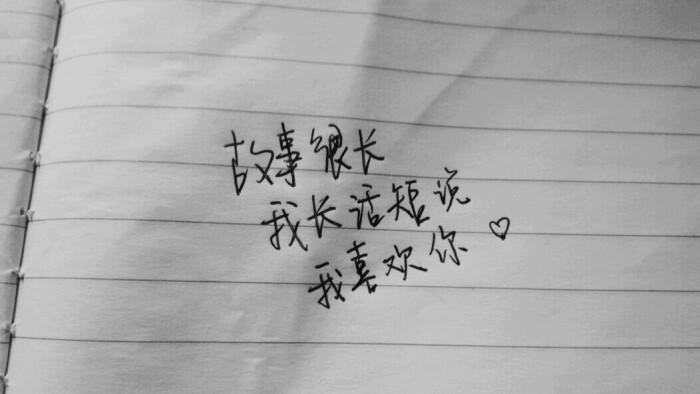 故事很长
我长话短说
我喜欢你♡